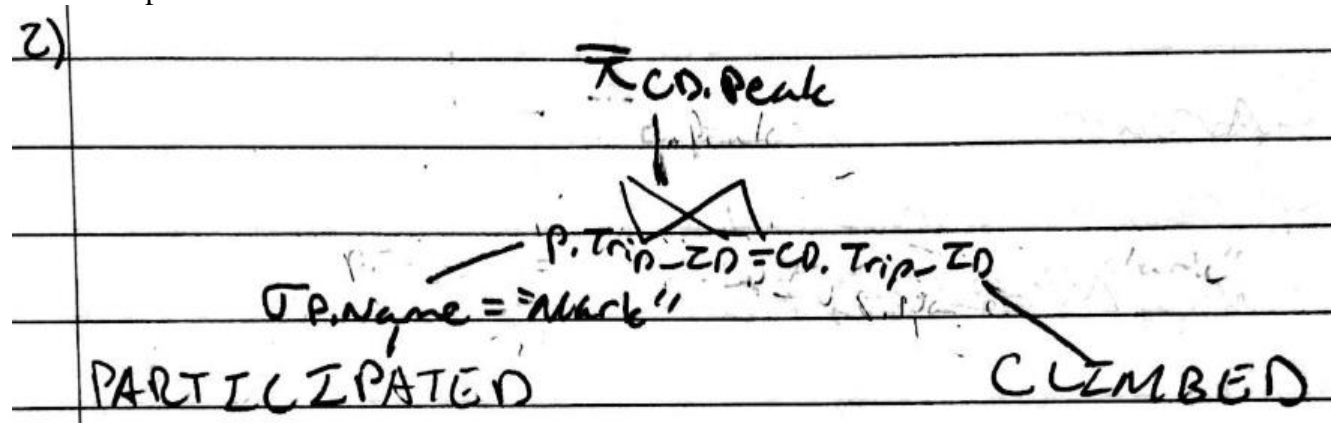 2)
π CD.Peak
⋈
P.Trip_ID = CD.Trip_ID
σ P.Name = "Mark"
PARTICIPATED CLIMBED